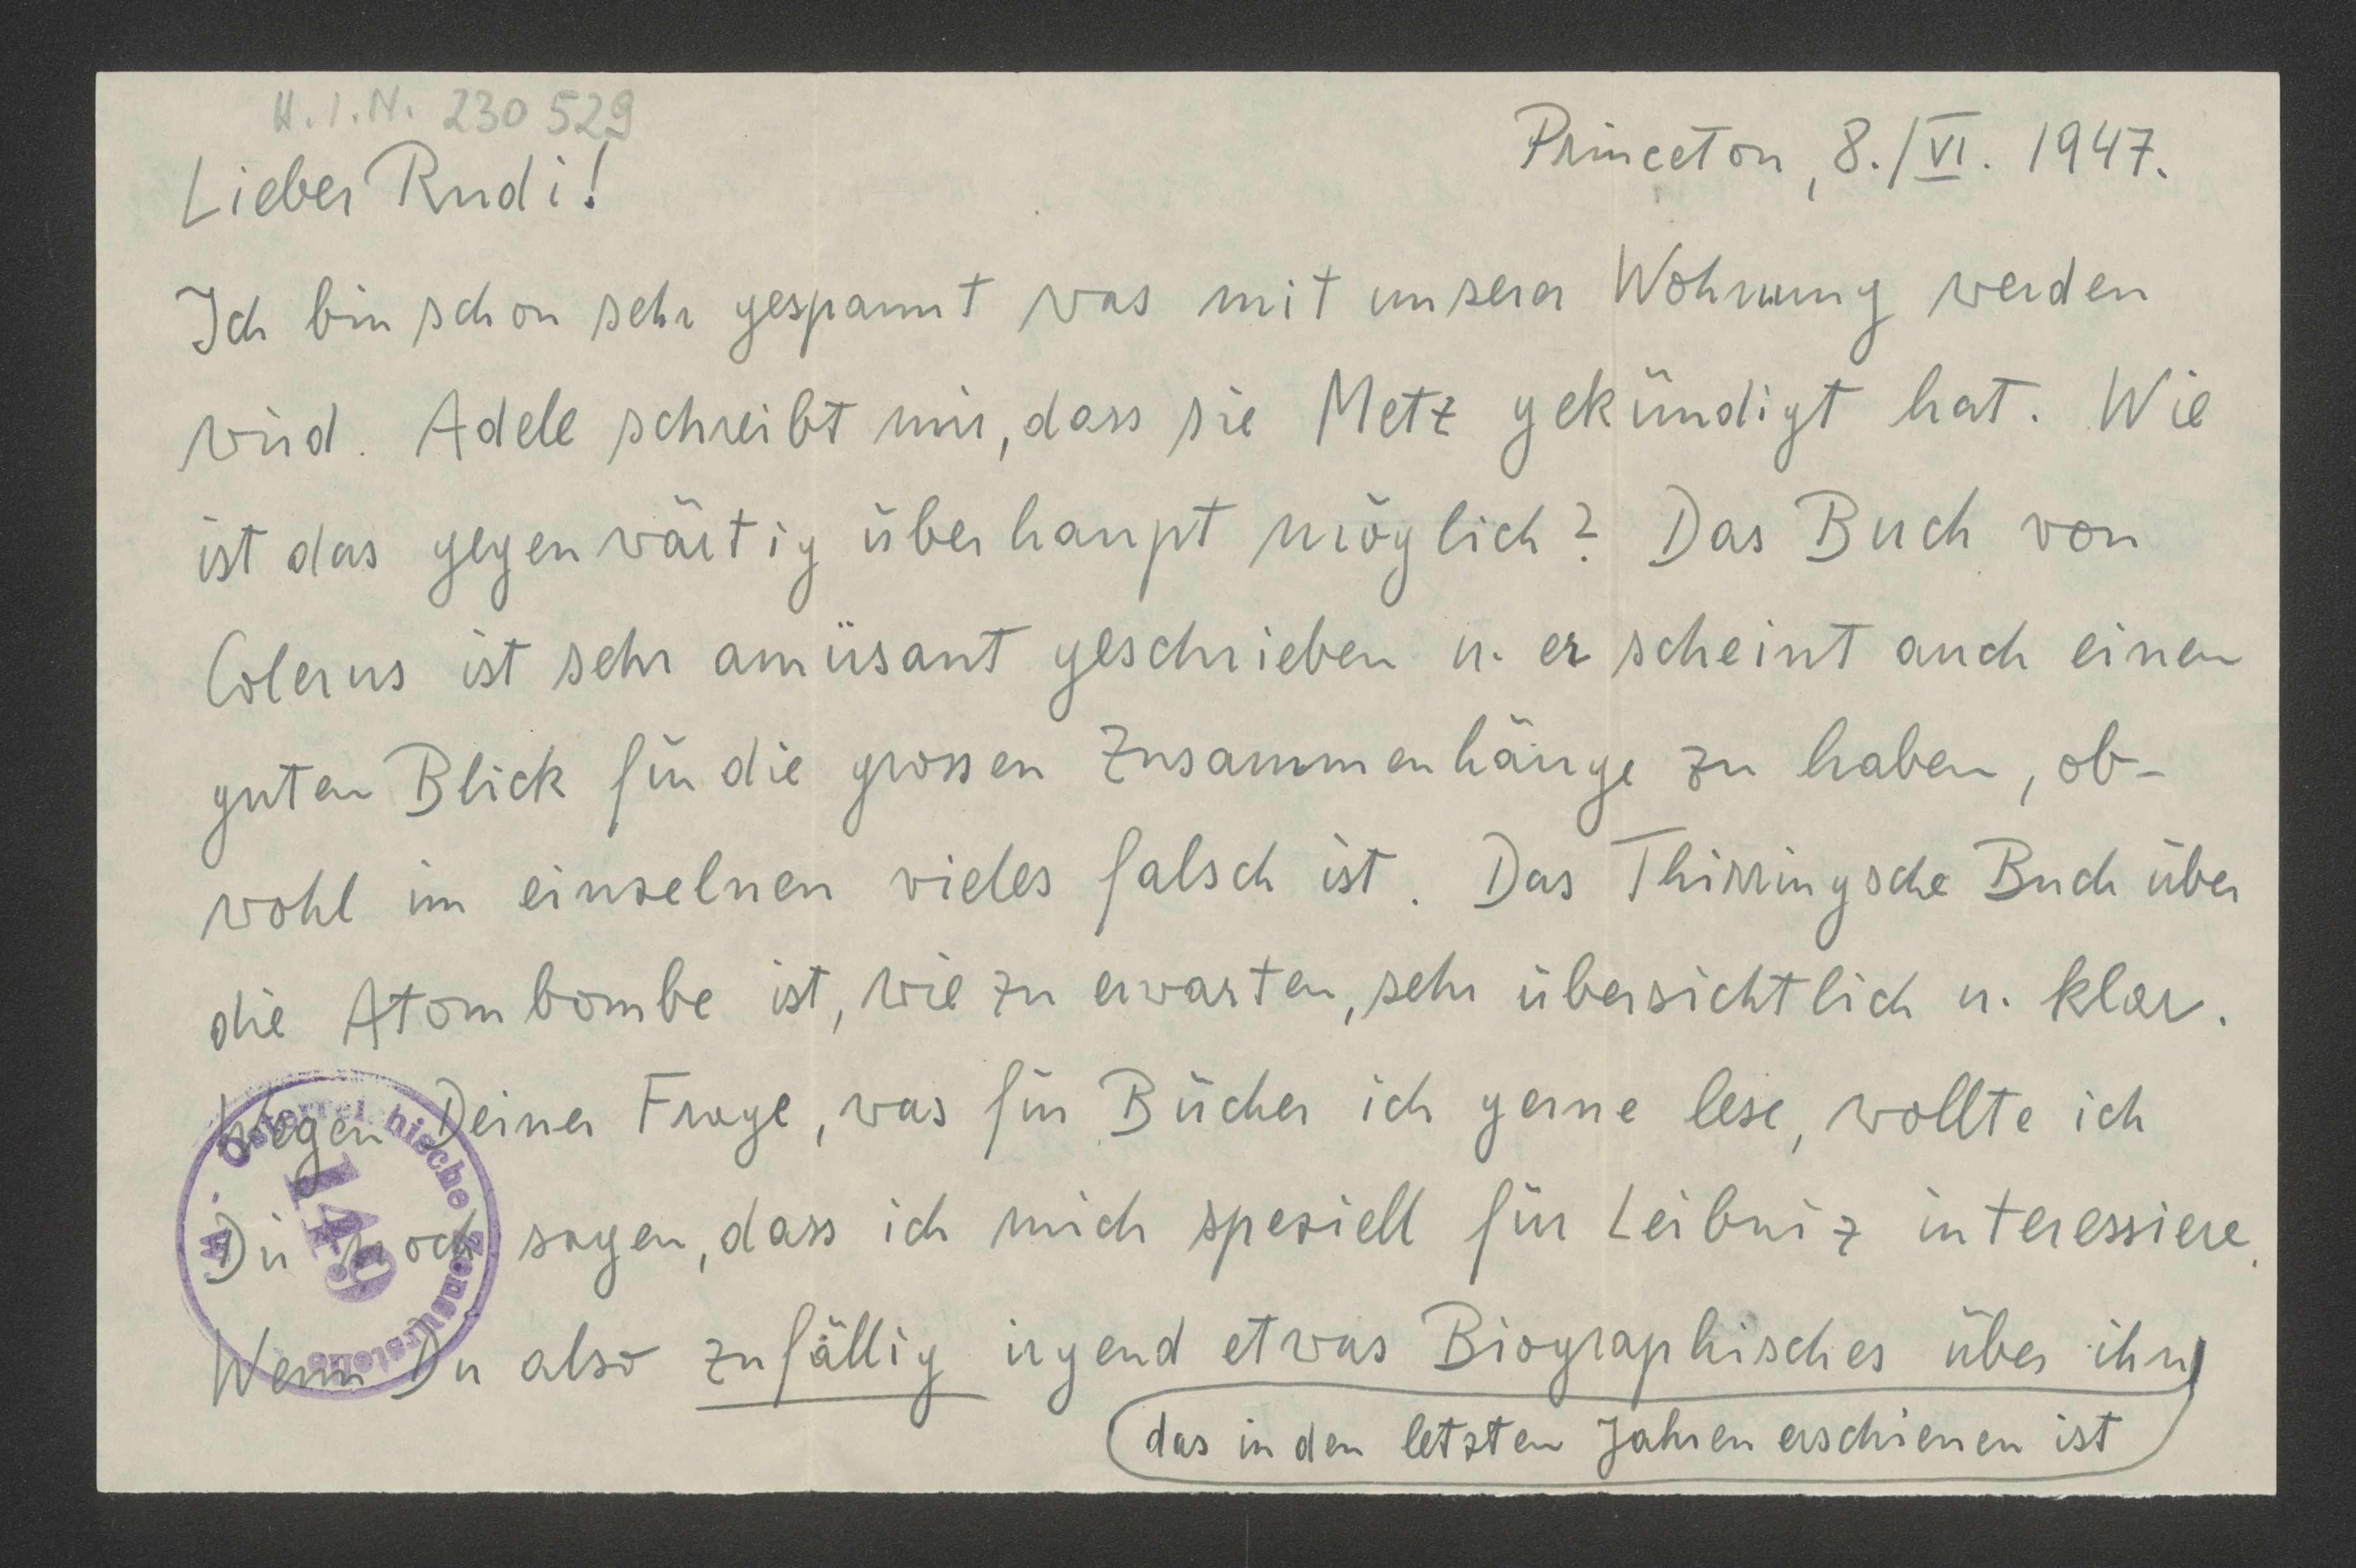 H.I.N. 230 529
Princeton, 8./VI. 1947.
Lieber Rudi!
Ich bin schon sehr gespannt was mit unserer Wohnung werden
wird. Adele schreibt mir, dass sie Metz gekündigt hat. Wie
ist das gegenwärtig überhaupt möglich? Das Buch von
Colerus ist sehr amüsant geschrieben u. er scheint auch einen
guten Blick für die grossen Zusammenhänge zu haben, ob-
wohl im einzelnen vieles falsch ist. Das Thirringsche Buch über
die Atombombe ist, wie zu erwarten, sehr übersichtlich u. klar.
Wegen Deiner Frage, was für Bücher ich gerne lese, wollte ich
Dir noch sagen, dass ich mich speziell für Leibniz interessiere.
Wenn Du also zufällig irgend etwas Biographisches über ihn
das in den letzten Jahren erschienen ist
Österreichische Zensurstelle
149